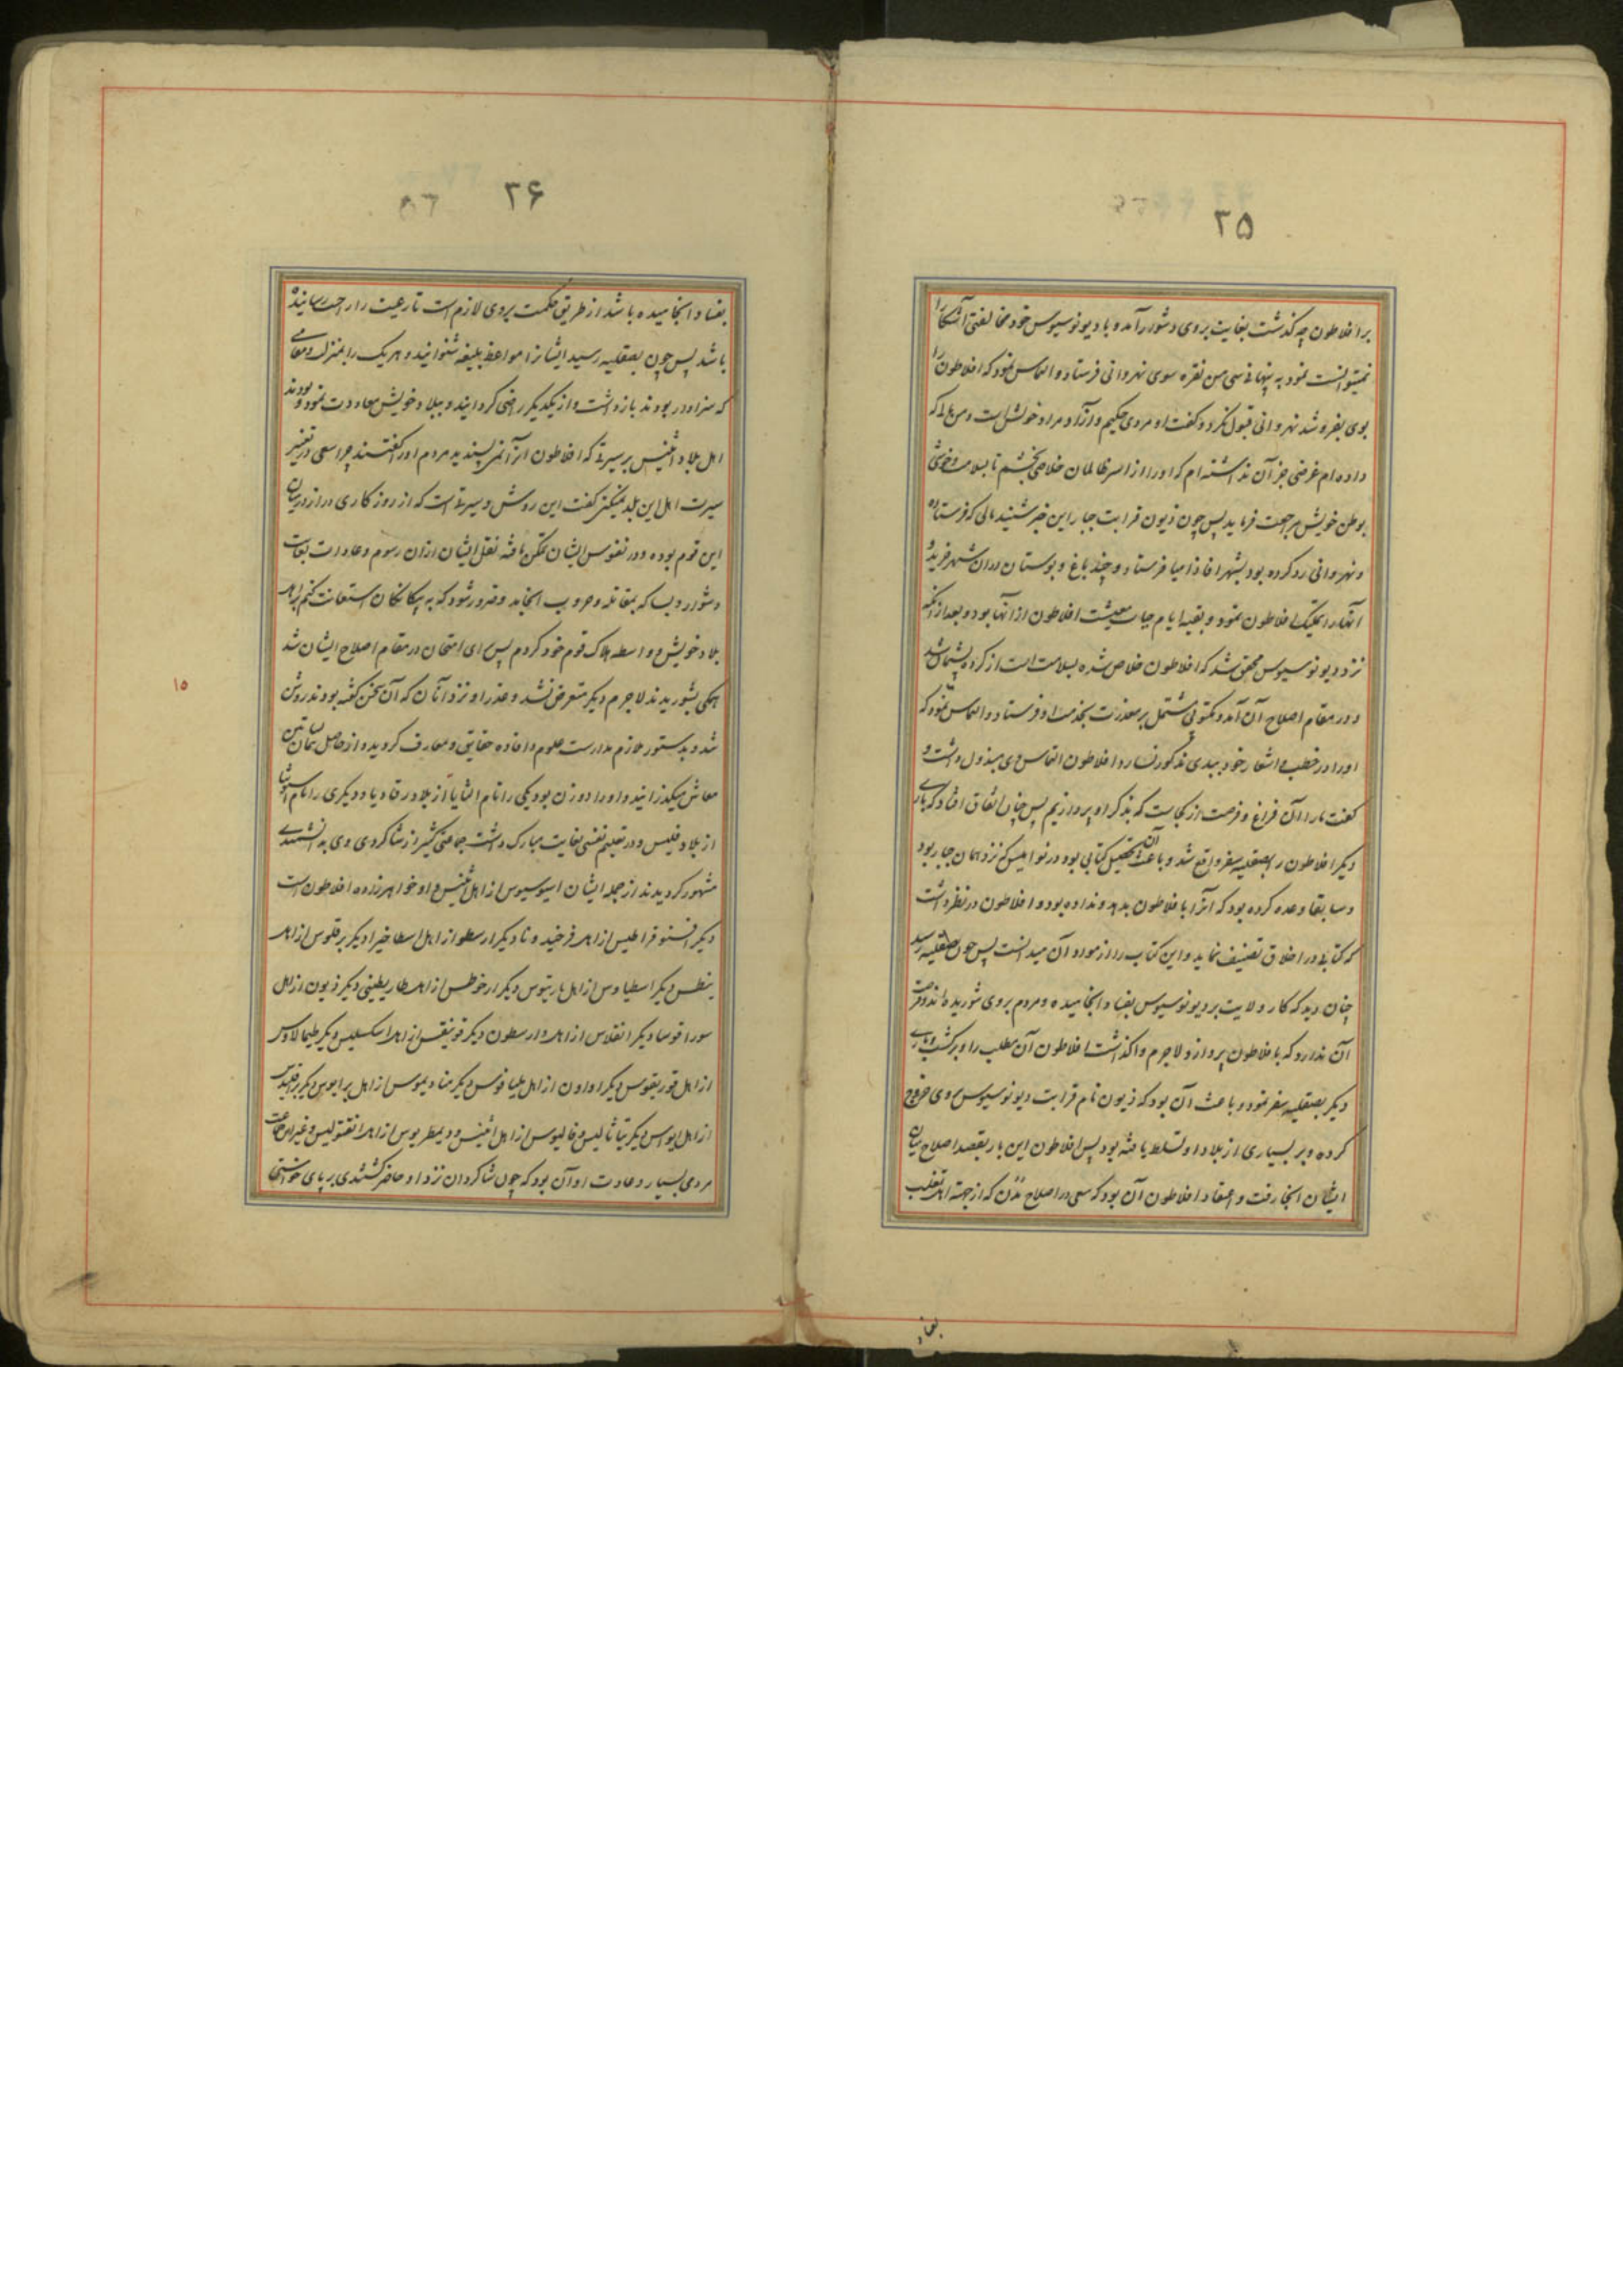 ۲۵
برافلاطون چه گذشت بغایت بروی دشوار آمده با دیونوسیوس خود مخالفتی آشکارا
نمیتوانست نمود به پنهانی سی من نقره سوی نهروانی فرستاد و التماس نمود که افلاطون را
بوی بفروشد نهروانی قبول نکرد و گفت او مردی حکیم و آزاد مراد خویش است و من مالی که
داده‌ام غرضی جز آن نداشته‌ام که او را از اسر ظالمان خلاصی بخشم تا بسلامت و خوشی
بوطن خویش مراجعت فرماید پس چون ذیون قرابت جبار این خبر شنید مالی که فرستاده
و نهروانی رد کرده بود بشهر اقاذامیا فرستاد و چند باغ و بوستان در ان شهر خرید و
آنها را تملیک افلاطون نمود و بقیه ایام حیات معیشت افلاطون از آنها بود و بعد از آنکه
نزد دیونوسیوس محقق شد که افلاطون خلاص شده بسلامت است از کرده پشیمان شد
و در مقام اصلاح آن آمد و مکتوبی مشتمل بر معذرت بخدمت او فرستاد و التماس نمود که
او را در خطب و اشعار خود ببدی مذکور نسازد افلاطون التماس وی مبذول داشت و
گفت ما را آن فراغ و فرصت از کجاست که بذکر او پردازیم پس چنان اتفاق افتاد که باری
دیگر افلاطون را بصقلیه سفر واقع شد و باعث آن تحصیل کتابی بود در نوامیس که نزد همان جبار بود
و سابقا وعده کرده بود که آنرا با فلاطون بدهد و نداده بود و افلاطون در نظر داشت
که کتابی در اخلاق تصنیف نماید و این کتاب را از مواد آن میدانست پس چون بصقلیه رسید
چنان دید که کار ولایت بر دیونوسیوس بفساد انجامیده و مردم بروی شوریده‌اند و فرصت
آن ندارد که با فلاطون پردازد لاجرم واگذاشت افلاطون آن مطلب را و برگشت و باری
دیگر بصقلیه سفر نمود و باعث آن بود که ذیون نام قرابت دیونوسیوس بروی خروج
کرده و بر بسیاری از بلاد او تسلط یافته بود پس افلاطون این بار بقصد اصلاح میان
ایشان انجا رفت و اعتقاد افلاطون آن بود که سعی در اصلاح مدن که از جهة اهل تغلب
بفساد
۲۶
بفساد انجامیده باشد از طریق حکمت بروی لازم است تا رعیت را راحت رسانیده
باشد پس چون بصقلیه رسید ایشانرا مواعظ بلیغه شنوانید و هر یک را بمنزلت و مقامی
که سزاوار بودند بازداشت و از یکدیگر راضی گردانید و ببلاد خویش معاودت نمود و بودند
اهل بلاد اثینس بر سیرتی که افلاطون انرا نمی‌پسندید مردم او را گفتند چرا سعی در تغییر
سیرت اهل این بلد نمیکنی گفت این روش و سیرتی است که از روزگاری دراز در میان
این قوم بوده و در نفوس ایشان تمکن یافته نقل ایشان از ان رسوم و عادات بغایت
دشوار و بسا که بمقاتله و حروب انجامد و ضرور شود که به بیگانگان استعانت کنم بر اهل
بلاد خویش و واسطه هلاک قوم خود گردم پس ای امتحان در مقام اصلاح ایشان شد
همگی بشوریدند لاجرم دیگر متعرض نشد و عذر او نزد آنان که آن سخن گفته بودند روشن
شد و بدستور ملازم مدارست علوم و افاده حقایق و معارف گردید و از حاصل همان بساتین
معاش میگذرانید و او را دو زن بود یکی را نام الثایا از بلاد رقادیا و دیگری را نام
از بلاد فلیس و در تعلیم نفسی بغایت مبارک داشت جماعتی کثیر از شاگردی وی بدانشمندی
مشهور گردیدند از جمله ایشان اسپوسیوس از اهل اثینس و او خواهرزاده افلاطون است
دیگر اقسنوقراطیس از اهل فرخیدونا دیگر ارسطو از اهل اسطاخیرا دیگر برقلوس از اهل
ینطس دیگر اسطیاوس از اهل بارینتوس دیگر ارخوطس از اهل طاریطینی دیگر ذیون از اهل
سوراقوسا دیگر انقلاس از اهل وارسطون دیگر فوینقس از اهل اسکسلیس دیگر طیمالاوس
از اهل قوریقوس دیگر اوارون از اهل بلیافوس دیگر منادیموس از اهل برابوس دیگر برقلیدس
از اهل ابوس دیگر تیتاثالیس و فالیوس از اهل اثینس و دیمطریوس از اهل انفتولیس و غیر ایشان جماعت
مردمی بسیار و عادت او آن بود که چون شاگردان نزد او حاضر گشتندی بر پای خواستی
۱۵